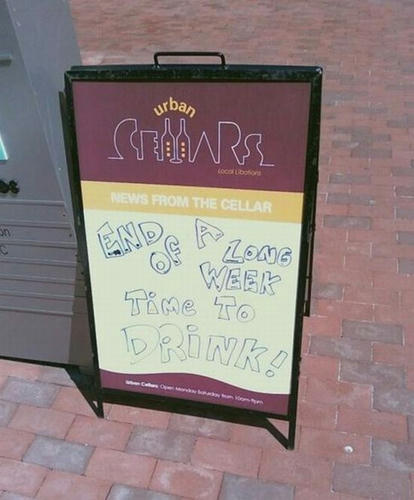 urban
CELLARS
Local Libations
NEWS FROM THE CELLAR
END OF A LONG
WEEK
TIME TO
DRINK!
Urban Cellars Open Monday-Saturday from 10am-9pm